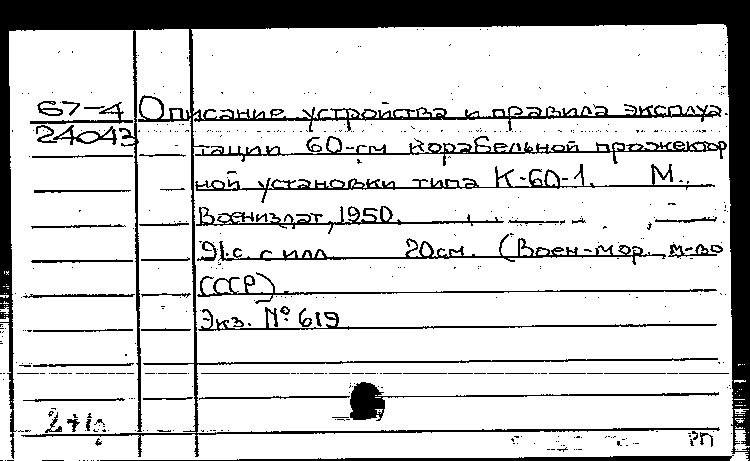 67-4 Описание устройства и правила эксплуа
24043
тации 60-см корабельной прожектор
ной установки типа К-60-1. М.,
Воениздат, 1950.
91.с. с илл. 20см. (Воен-мор. м-во
СССР).
Экз. № 619
РП